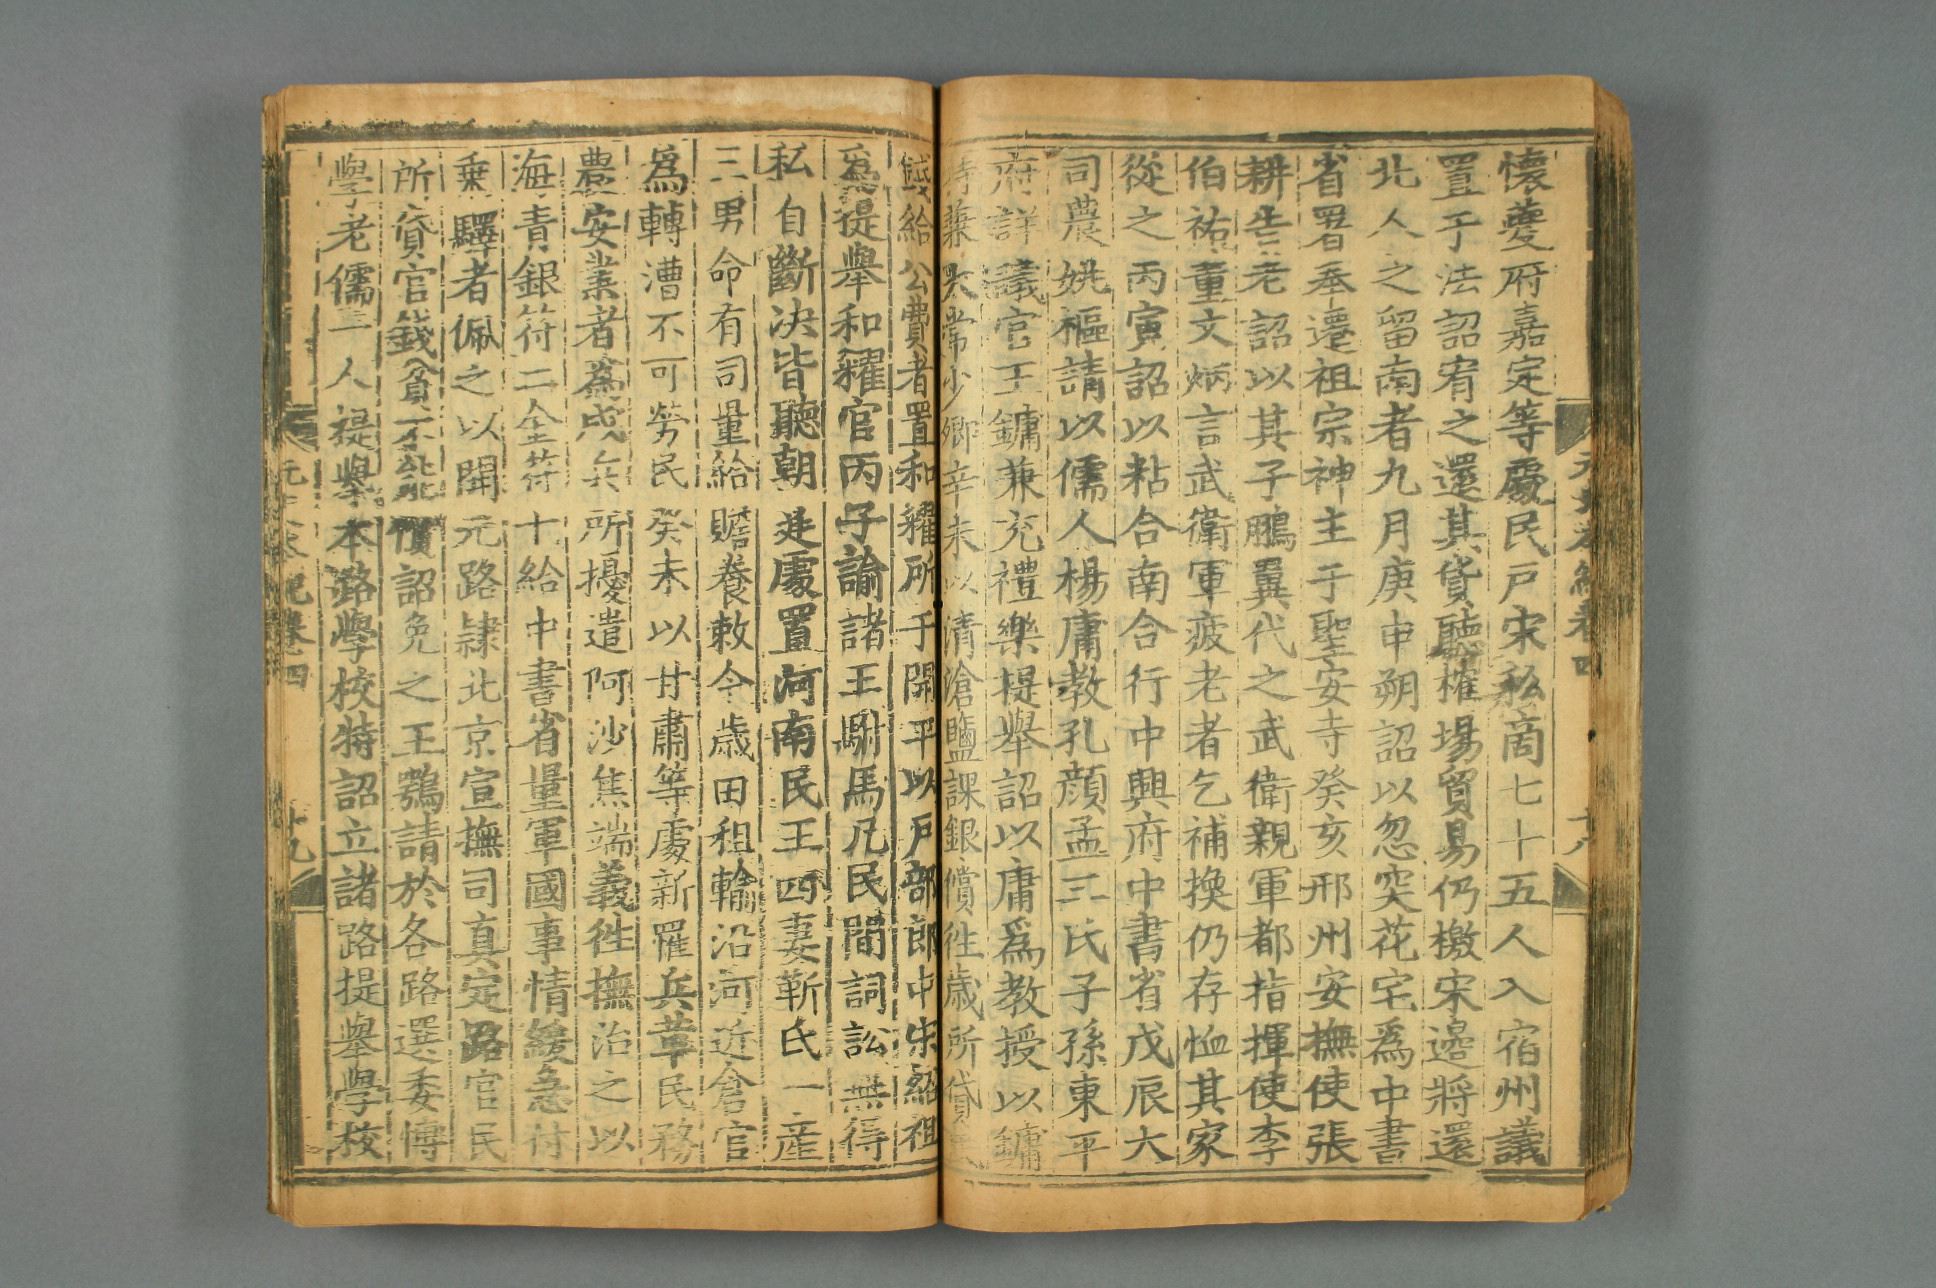 懷慶府嘉定等處民戶宋私商七十五人入宿州議
置于法詔宥之還其貸聽榷場貿易仍檄宋邊將還
北人之留南者九月庚申朔詔以忽突花宅爲中書
省署奉遷祖宗神主于聖安寺癸亥邢州安撫使張
耕告老詔以其子鵬翼代之武衛親軍都指揮使李
伯祐董文炳言武衛軍疲老者乞補換仍存恤其家
從之丙寅詔以粘合南合行中興府中書省戊辰大
司農姚樞請以儒人楊庸教孔顔孟三氏子孫東平
府詳議官王鏞兼充禮樂提舉詔以庸爲教授以鏞
特兼太常少卿辛未以清滄鹽課銀償往歲所貸民
錢給公費者置和糴所于開平以戶部郎中宋紹祖
爲提舉和糴官丙子諭諸王駙馬凡民間詞訟無得
私自斷决皆聽朝廷處置河南民王四妻靳氏一産
三男命有司量給贍養敕今歲田租輸沿河近倉官
爲轉漕不可勞民癸未以甘肅等處新罹兵革民務
農安業者爲戍兵所擾遣阿沙焦端義徃撫治之以
海青銀符二金符十給中書省量軍國事情緩急付
乗驛者佩之以開元路隷北京宣撫司真定路官民
所貸官錢貧不能償詔免之王鶚請於各路選委博
學老儒一人提舉本路學校特詔立諸路提舉學校
元史本紀卷四
十八
元史本紀卷四
十九